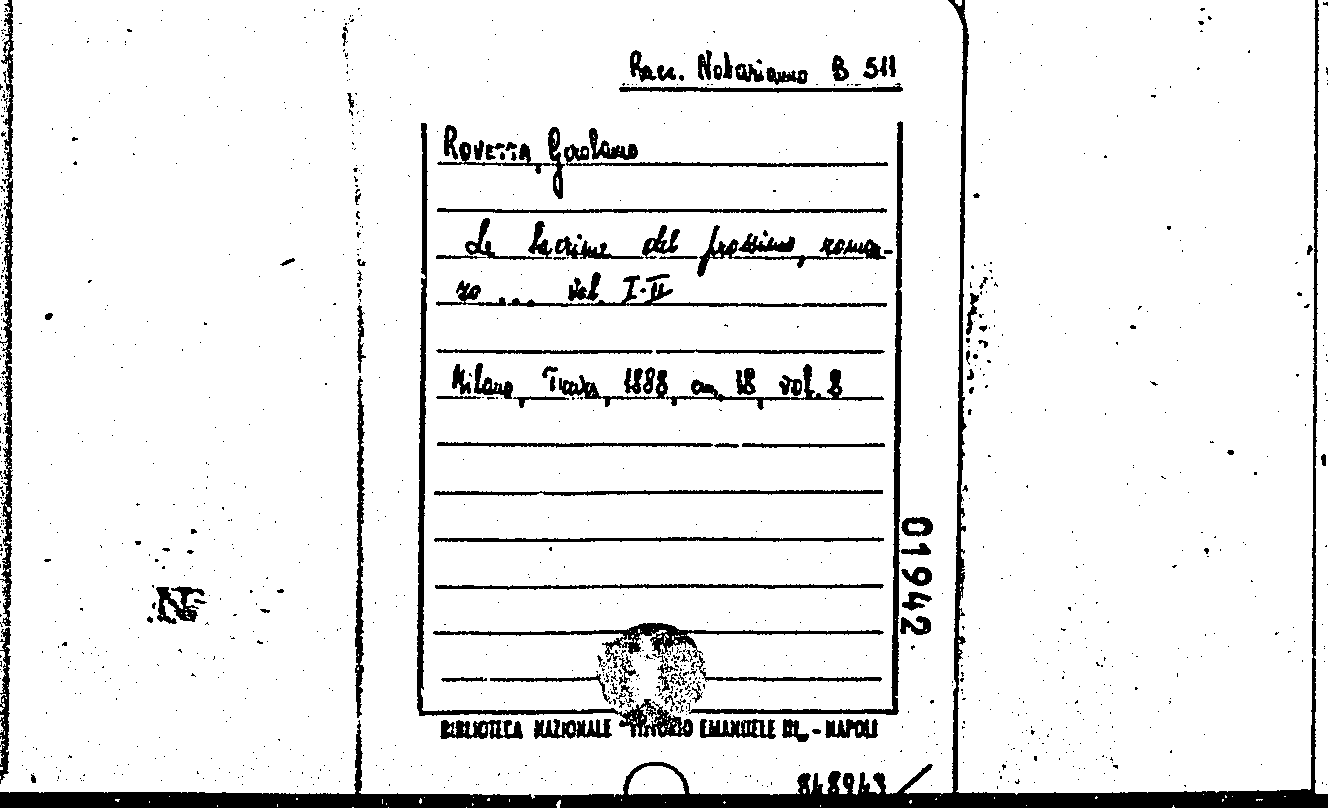 Racc. Notarianno B 511
ROVETTA, Gerolamo
Le lacrime del prossimo, roman-
zo ... vol. I-II
Milano, Treves, 1888, cm. 18, vol. 2
01942
BIBLIOTECA NAZIONALE "VITTORIO EMANUELE III" - NAPOLI
848943